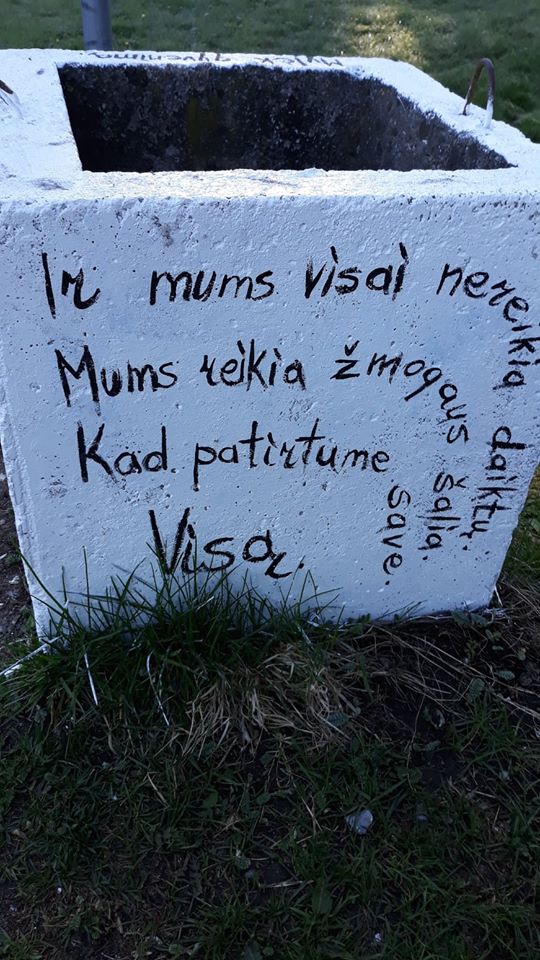 Ir mums visai nereikia daiktų.
Mums reikia žmogaus šalia.
Kad patirtume save.
Visa.